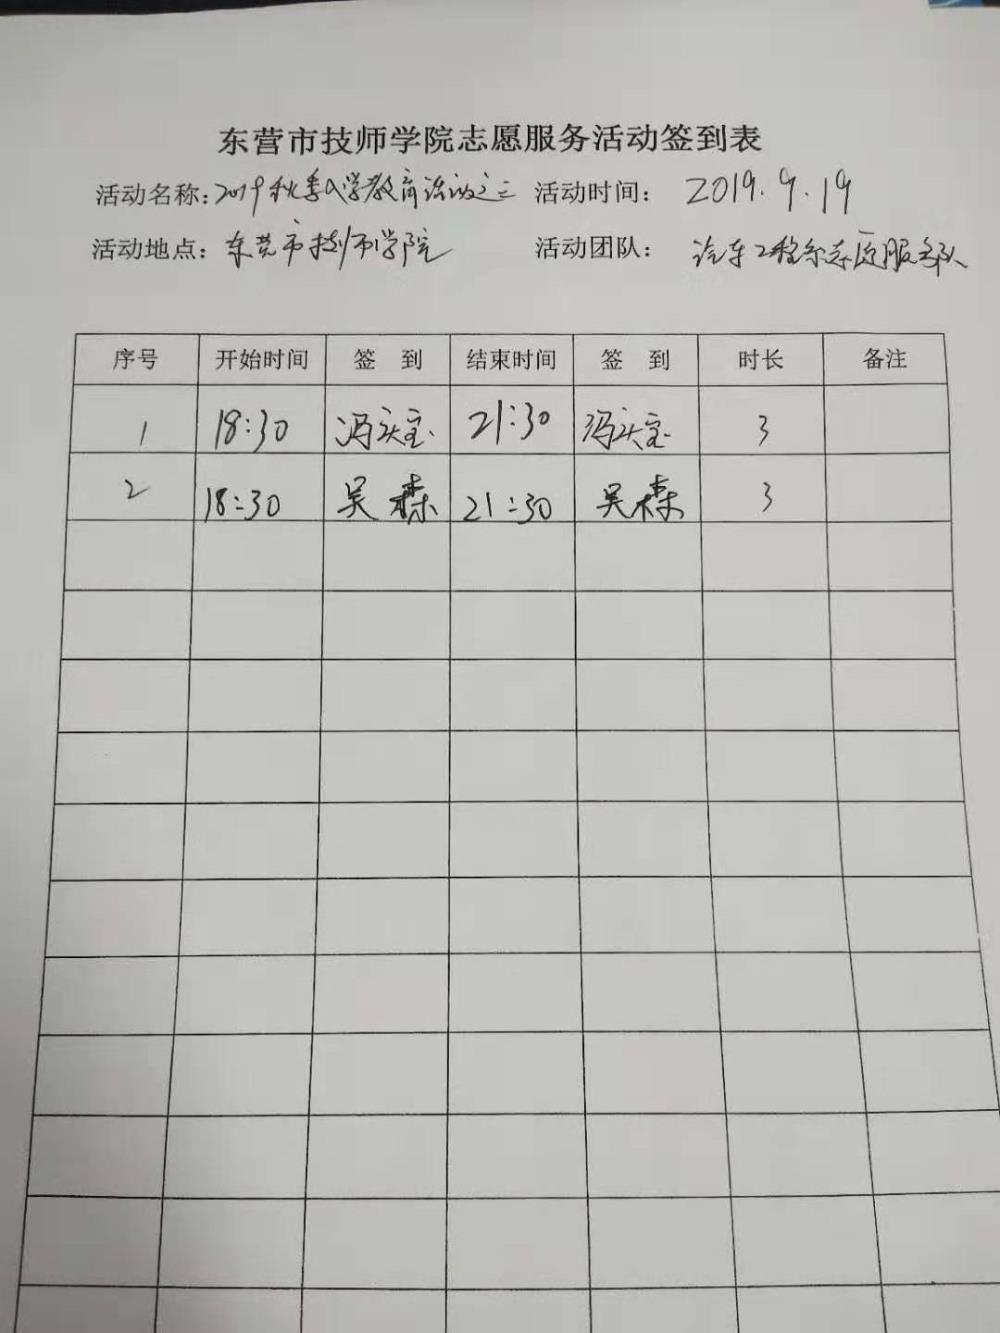 东营市技师学院志愿服务活动签到表
活动名称：2019秋季入学教育 之三 活动时间： 2019.9.19
活动地点：东营市技师学院 活动团队： 汽车工程系志愿服务队
序号 开始时间 签 到 结束时间 签 到 时长 备注
1 18:30 冯宝 21:30 冯宝 3
2 18:30 吴森 21:30 吴森 3